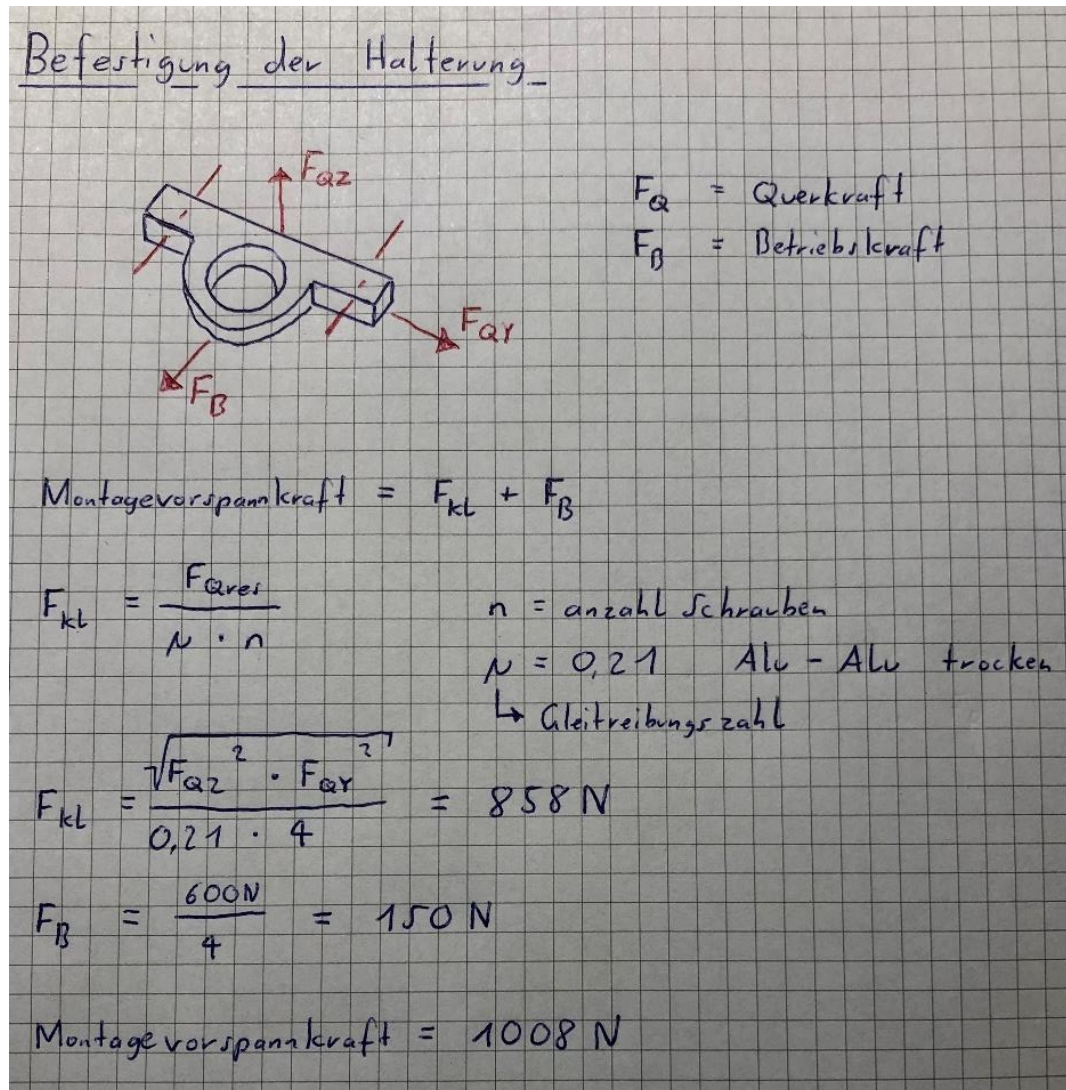 Befestigung der Halterung
F_QZ
F_Q = Querkraft
F_B = Betriebskraft
F_QY
F_B
Montagevorspannkraft = F_kl + F_B
F_kl = F_Qres / μ · n
n = anzahl Schrauben
μ = 0,21 Alu - Alu trocken
↳ Gleitreibungszahl
F_kl = √F_QZ² · F_QY² / 0,21 · 4 = 858 N
F_B = 600N / 4 = 150 N
Montagevorspannkraft = 1008 N